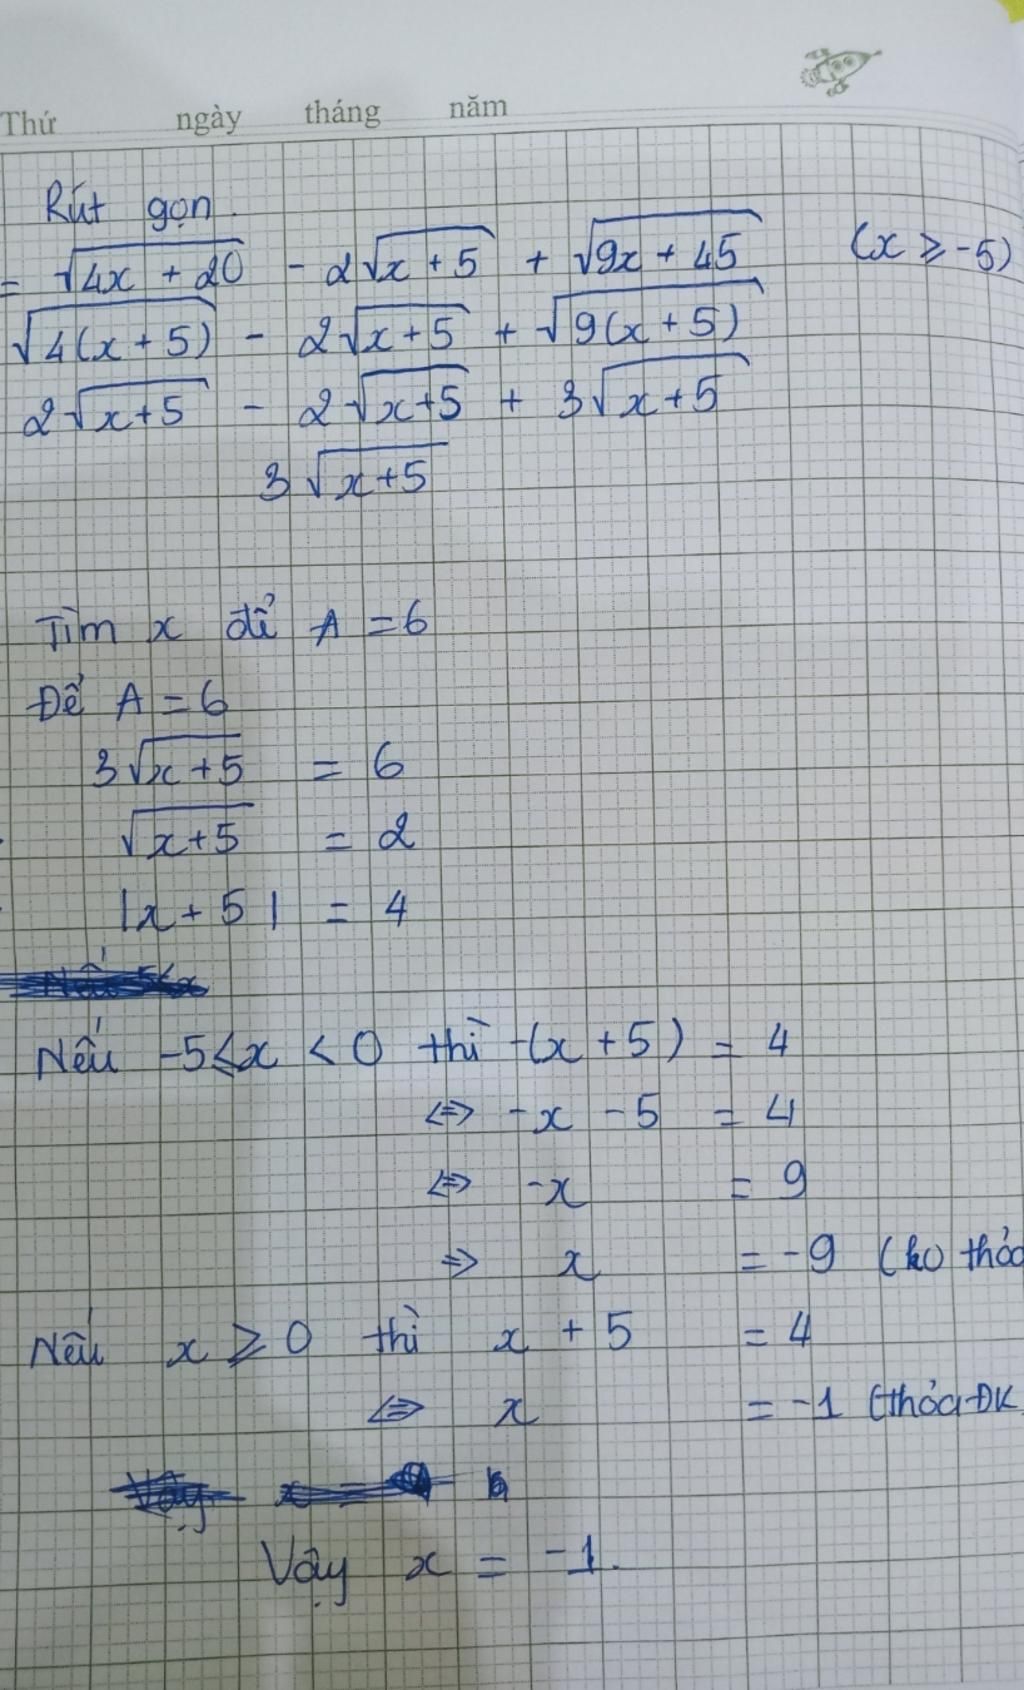 Thứ ngày tháng năm
Rút gọn.
= √(4x + 20) - 2√(x + 5) + √(9x + 45) (x ≥ -5)
√(4(x + 5)) - 2√(x + 5) + √(9(x + 5))
2√(x+5) - 2√(x+5) + 3√(x+5)
3√(x+5)
Tìm x để A = 6
Để A = 6
3√(x+5) = 6
√(x+5) = 2
|x + 5| = 4
Nếu -5 ≤ x < 0 thì -(x + 5) = 4
⇔ -x - 5 = 4
⇔ -x = 9
⇒ x = -9 (ko thỏa
Nếu x ≥ 0 thì x + 5 = 4
⇔ x = -1 (thỏa ĐK
Vậy x = -1.